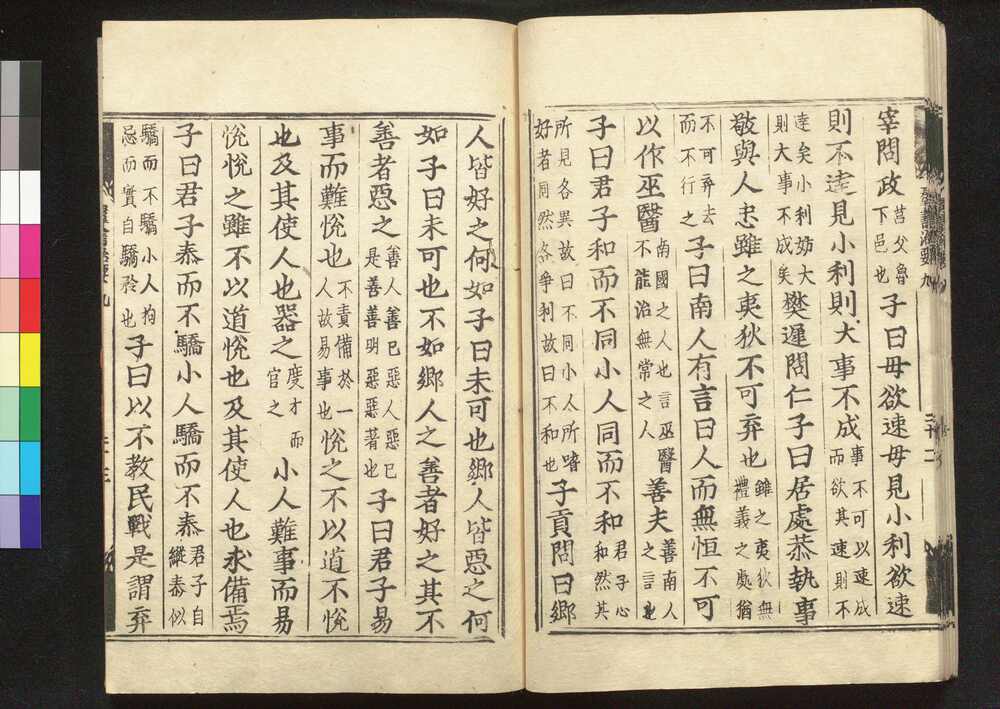 宰問政莒父魯下邑也子曰毋欲速毋見小利欲速
則不達見小利則大事不成事不可以速成而欲其速則不
達矣小利妨大則大事不成矣樊遲問仁子曰居處恭執事
敬與人忠雖之夷狄不可弃也雖之夷狄無禮義之處猶
不可弃去而不行之子曰南人有言曰人而無恒不可
以作巫醫南國之人也言巫醫不能治無常之人善夫善南人之言也
子曰君子和而不同小人同而不和君子心和然其
所見各異故曰不同小人所嗜好者同然各爭利故曰不和也子貢問曰鄉
人皆好之何如子曰未可也鄉人皆惡之何
如子曰未可也不如鄉人之善者好之其不
善者惡之善人善己惡人惡己是善善明惡惡著也子曰君子易
事而難悅也不責備於一人故易事也悅之不以道不悅
也及其使人也器之度才而官之小人難事而易
悅悅之雖不以道悅也及其使人也求備焉
子曰君子泰而不驕小人驕而不泰君子自縱泰似
驕而不驕小人拘忌而實自驕矜也子曰以不教民戰是謂弃